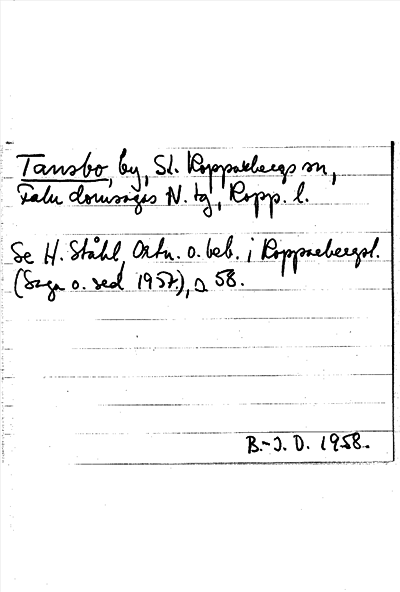 Tansbo, by, St. Kopparbergs sn,
Falu domsagas N. tg, Kopp. l.
Se H. Ståhl, Ortn. o. beb. i Kopparbergsl.
(Saga o. sed 1957), s 58.
B.-J. D. 1958.